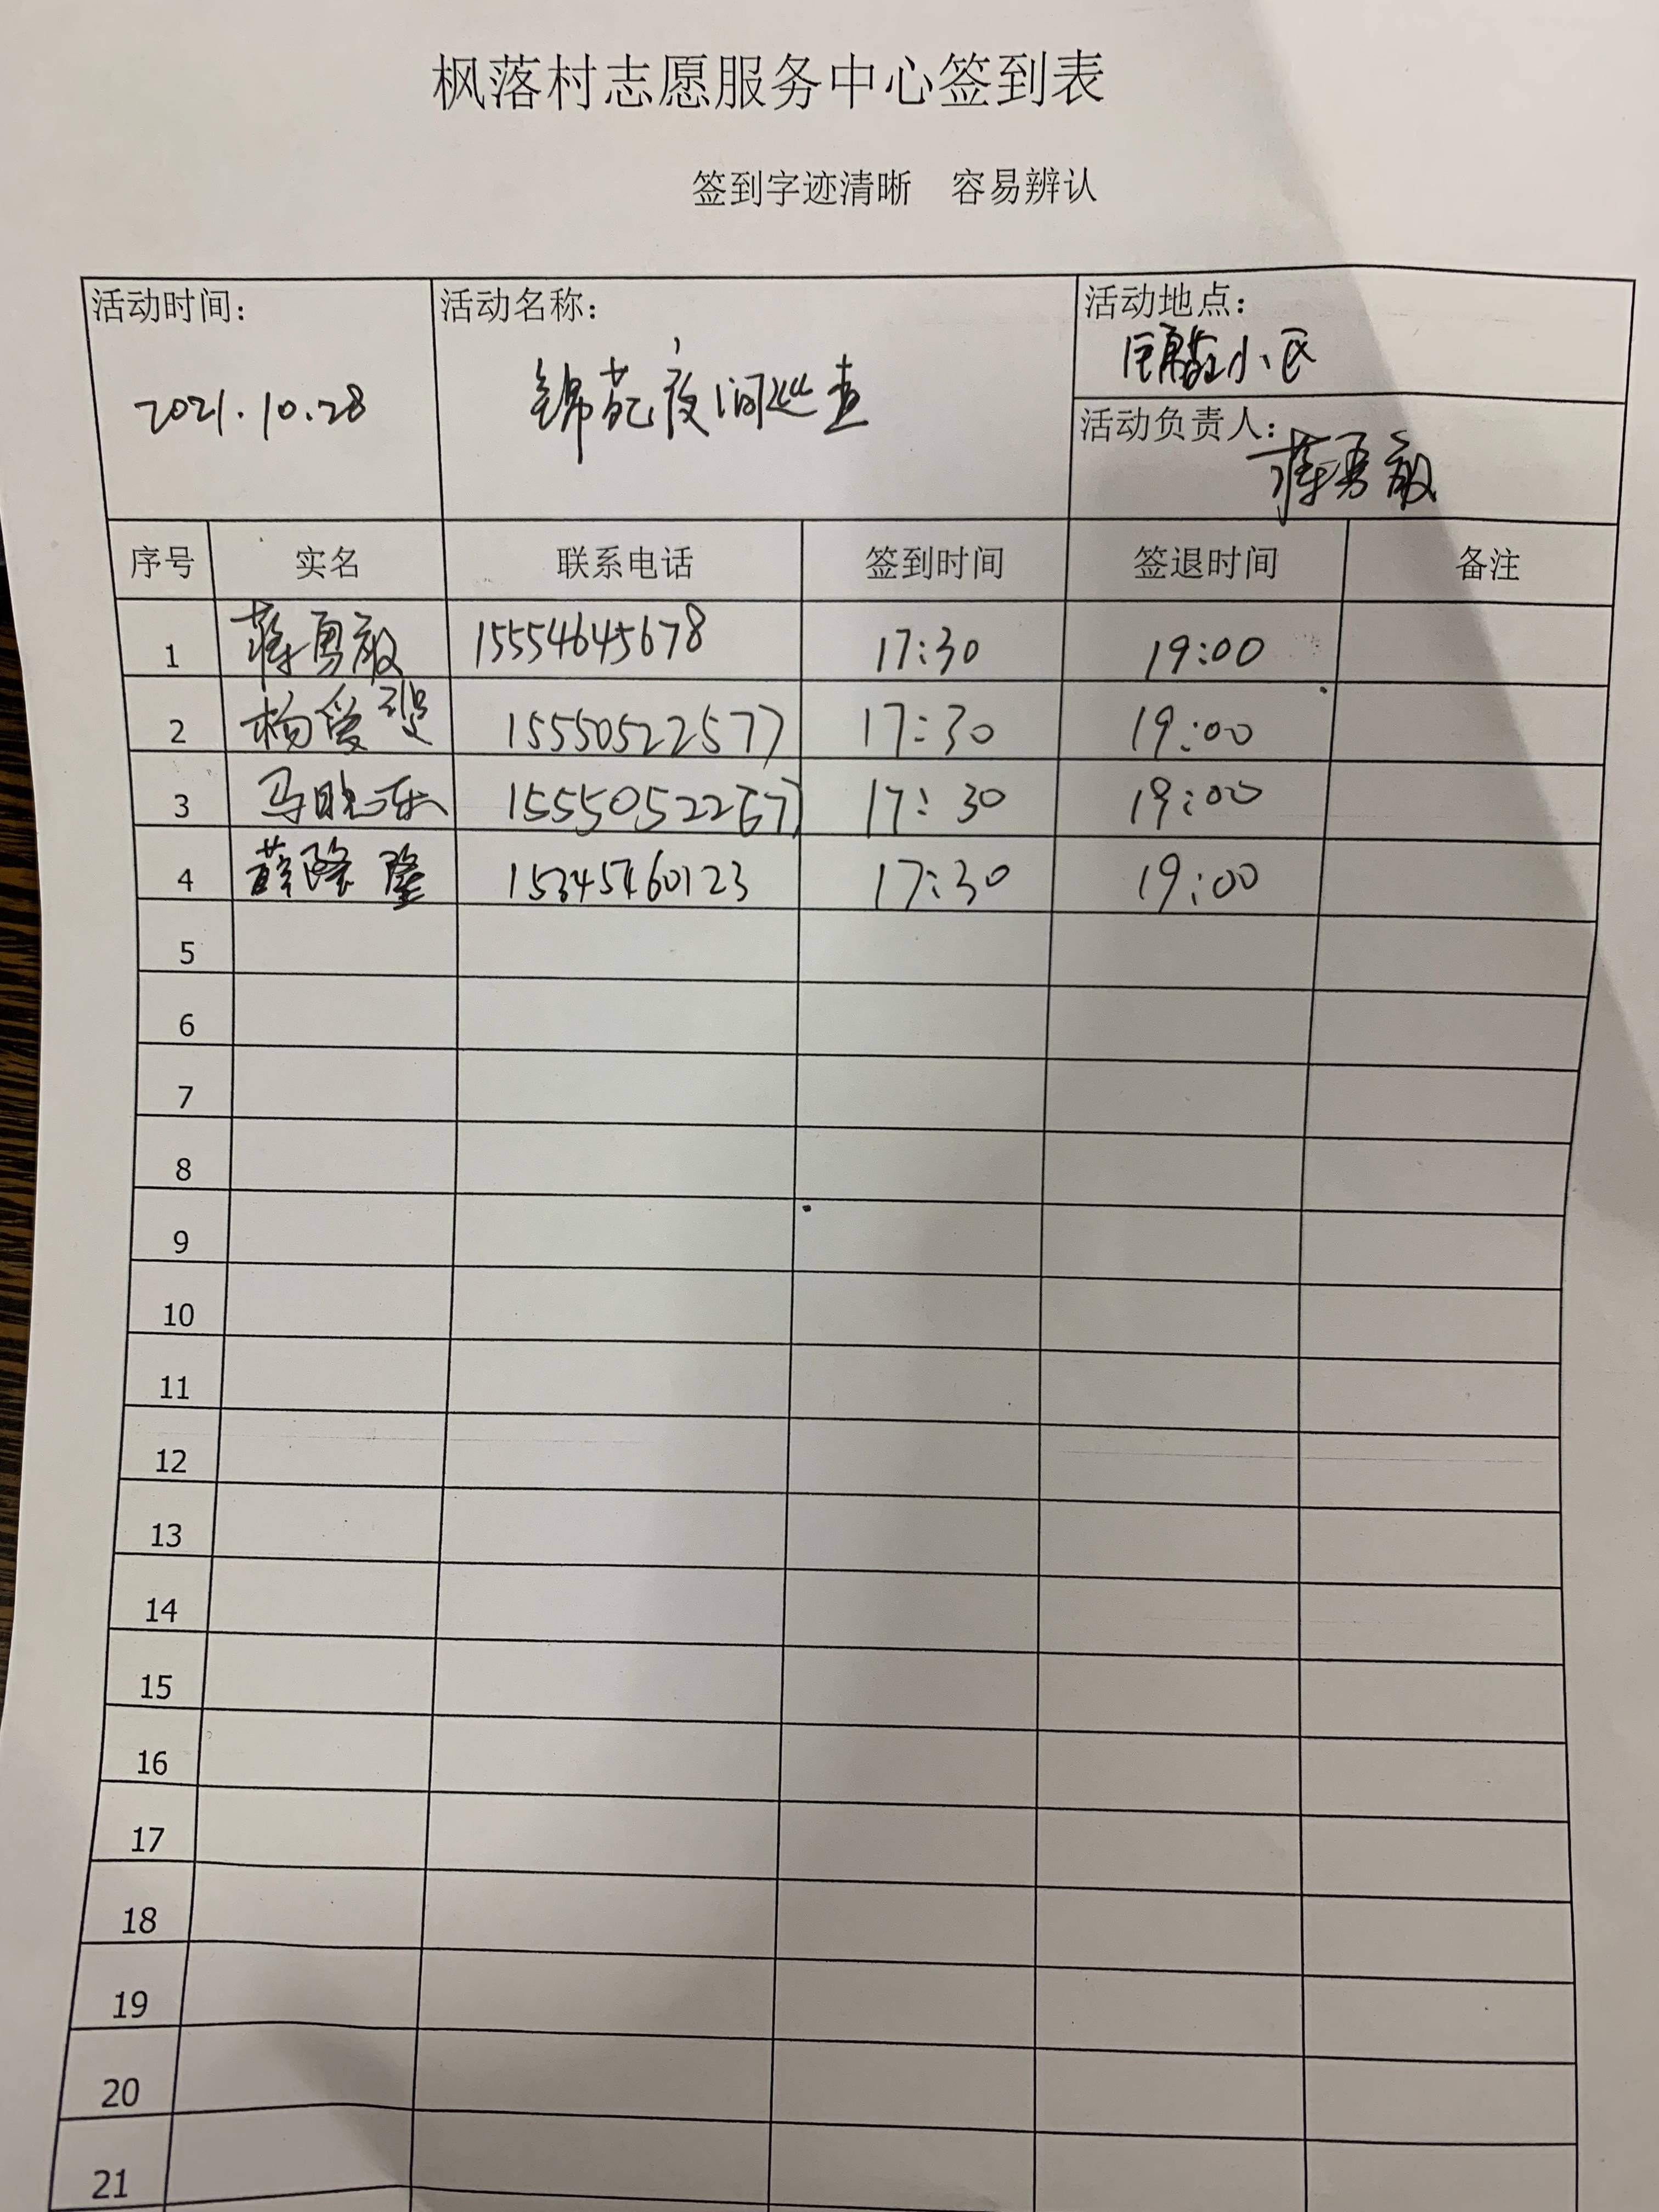 枫落村志愿服务中心签到表
签到字迹清晰 容易辨认
活动时间: 活动名称: 活动地点:
2021.10.28 锦苑夜间巡查 小区
活动负责人: 蒋勇敢
序号 实名 联系电话 签到时间 签退时间 备注
1 蒋勇敢 15554645678 17:30 19:00
2 杨爱 15550522577 17:30 19:00
3 马晓东 17:30 19:00
4 薛隆隆 15345760123 17:30 19:00
5
6
7
8
9
10
11
12
13
14
15
16
17
18
19
20
21